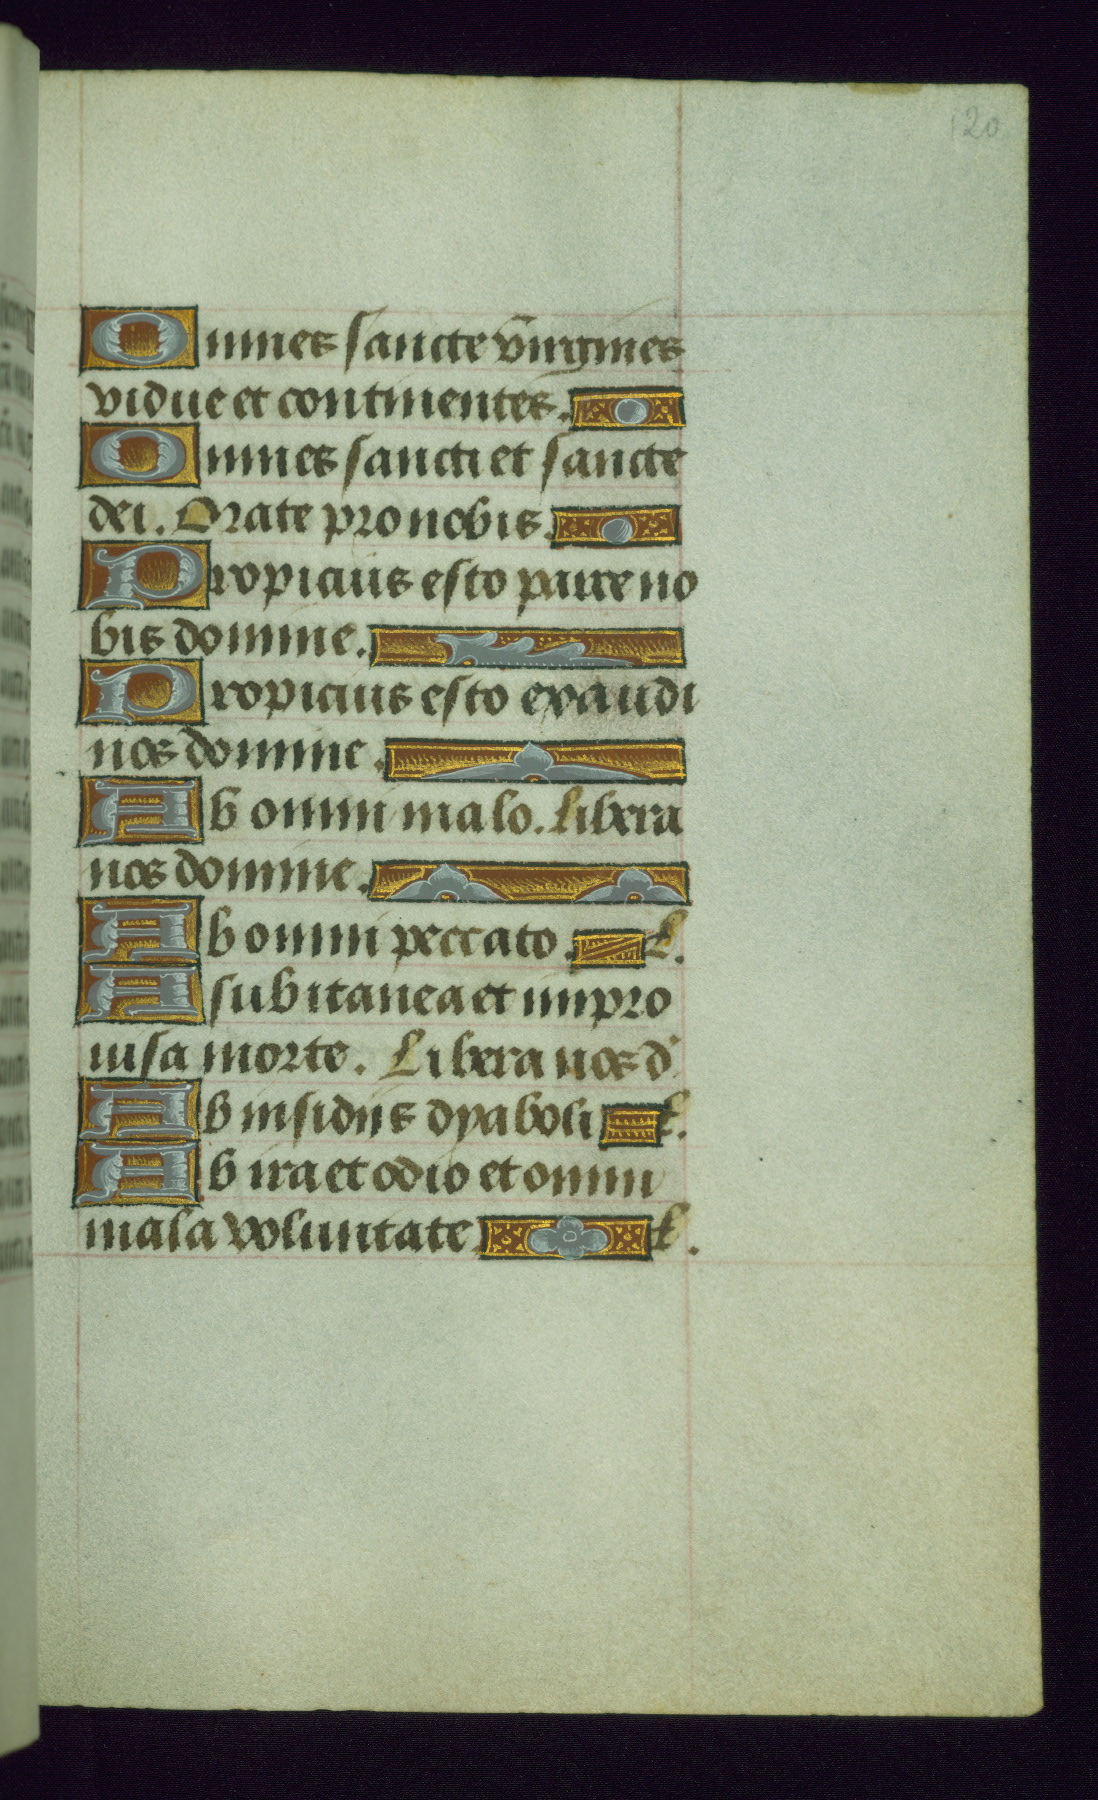 120
Omnes sancte virgines
vidue et continentes.
Omnes sancti et sancte
dei. Orate pro nobis.
Propicius esto parce no
bis domine.
Propicius esto exaudi
nos domine.
Ab omni malo. Libera
nos domine.
Ab omni peccato. L.
A subitanea et impro
uisa morte. Libera nos d
Ab insidiis dyaboli L.
Ab ira et odio et omni
mala voluntate. L.